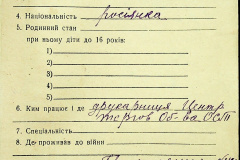 4. Національність росіянка
5. Родинний стан
при ньому діти до 16 років:
1)
2)
3)
4)
5)
6. Ким працює і де друкарниця Центр
торгов Об-ва
7. Спеціальність
8. Де проживав до війни